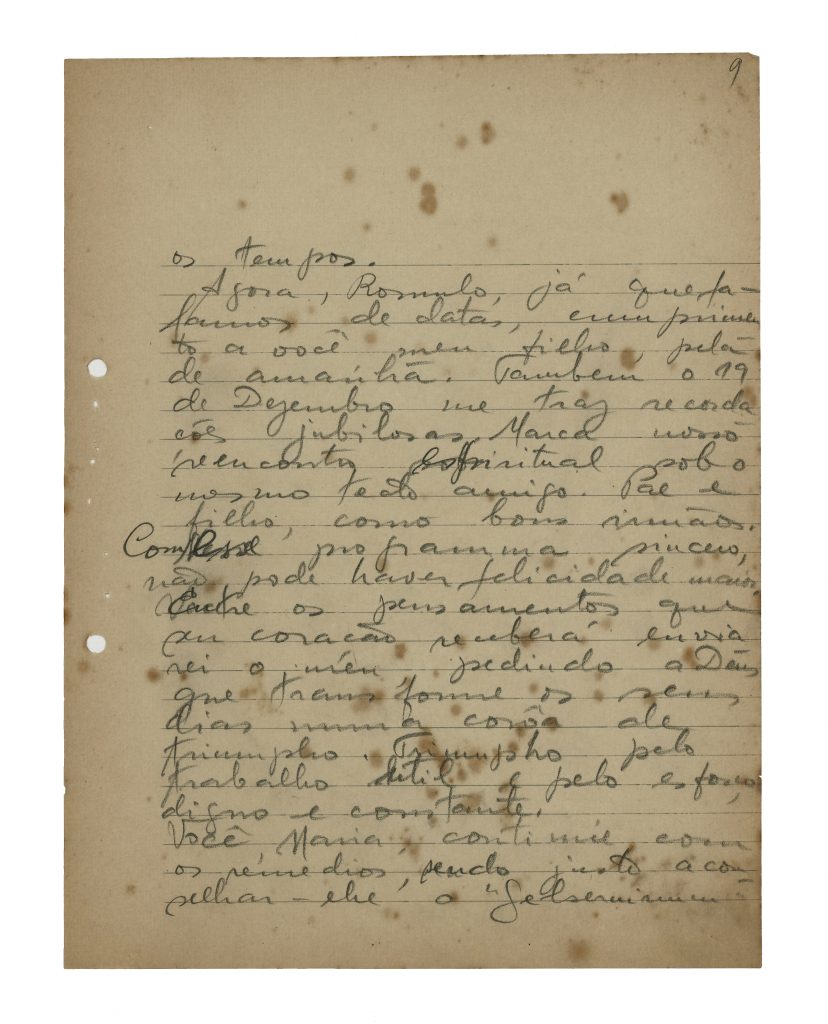 9
os tempos.
Agora, Romulo, já que fa-
lamos de datas, cumprimen
to a você meu filho, pela
de amanhã. Tambem o 19
de Dezembro me traz recorda
ções jubilosas. Marca nosso
reencontro espiritual sob o
mesmo tecto amigo. Pae e
filho, como bons irmãos.
Com esse programma sincero,
não pode haver felicidade maior.
Entre os pensamentos que
seu coração receberá envia
rei o meu, pedindo a Deus
que transforme os seus
dias numa corôa de
triumpho. Triumpho pelo
trabalho util e pelo esforço
digno e constante.
Você Maria, continúe com
os remedios, sendo justo acon
selhar-lhe o "Gelseminum